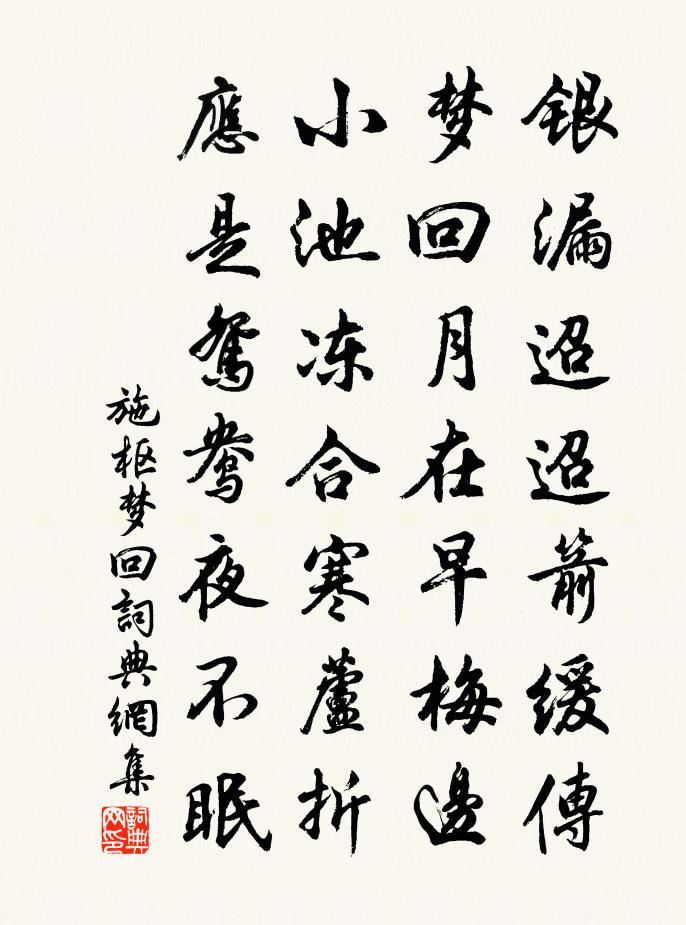 銀漏迢迢箭緩傳
梦回月在早梅邊
小池冻合寒蘆折
應是鴛鴦夜不眠
施枢梦回詞典網集
詞典网印